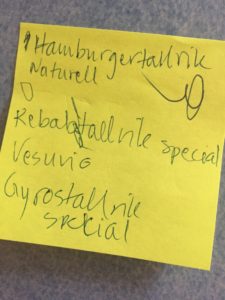 1 Hamburgertallrik
Naturell
Kebabtallrik Special
Vesuvio
Gyrostallrik
special